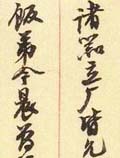 諸器立厂皆允
飯弟今晨為